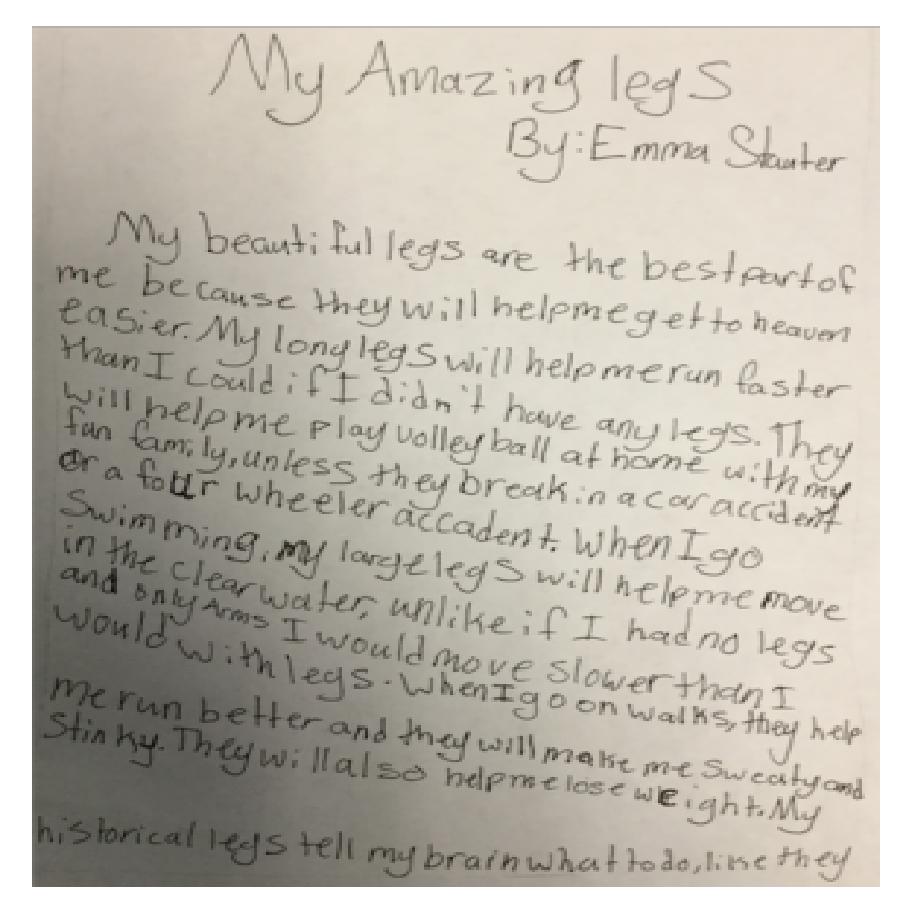 My Amazing legs
By: Emma
My beautiful legs are the best part of
me because they will help me get to heaven
easier. My long legs will help me run faster
than I could if I didn't have any legs. They
will help me play volley ball at home with my
fun family, unless they break in a car accident
or a four wheeler accadent. When I go
Swimming, my large legs will help me move
in the clear water, unlike if I had no legs
and only Arms I would move slower than I
would with legs. When I go on walks, they help
me run better and they will make me sweaty and
Stinky. They will also help me lose weight. My
historical legs tell my brain what to do, like they